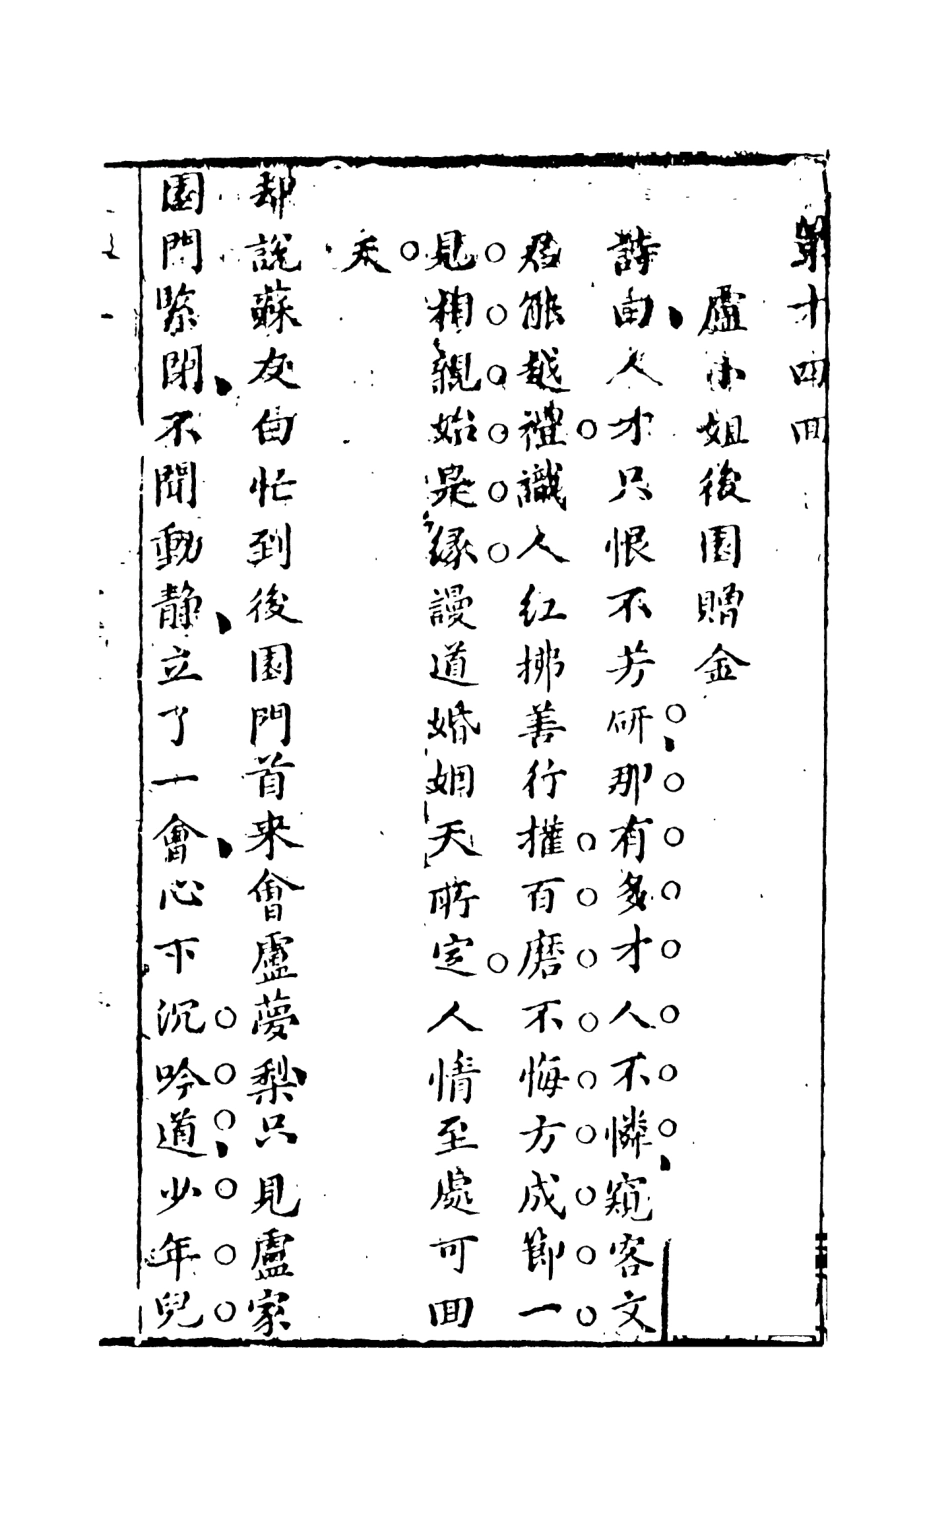 第十四回
盧小姐後園贈金
詩曰人才只恨不芳研那有多才人不憐窺客文
君能越禮識人紅拂善行權百磨不悔方成節一
見相親始是緣謾道婚姻天所定人情至處可回
天
却說蘇友白忙到後園門首来會盧夢梨只見盧家
園門緊閉不聞動靜立了一會心下沉吟道少年兒